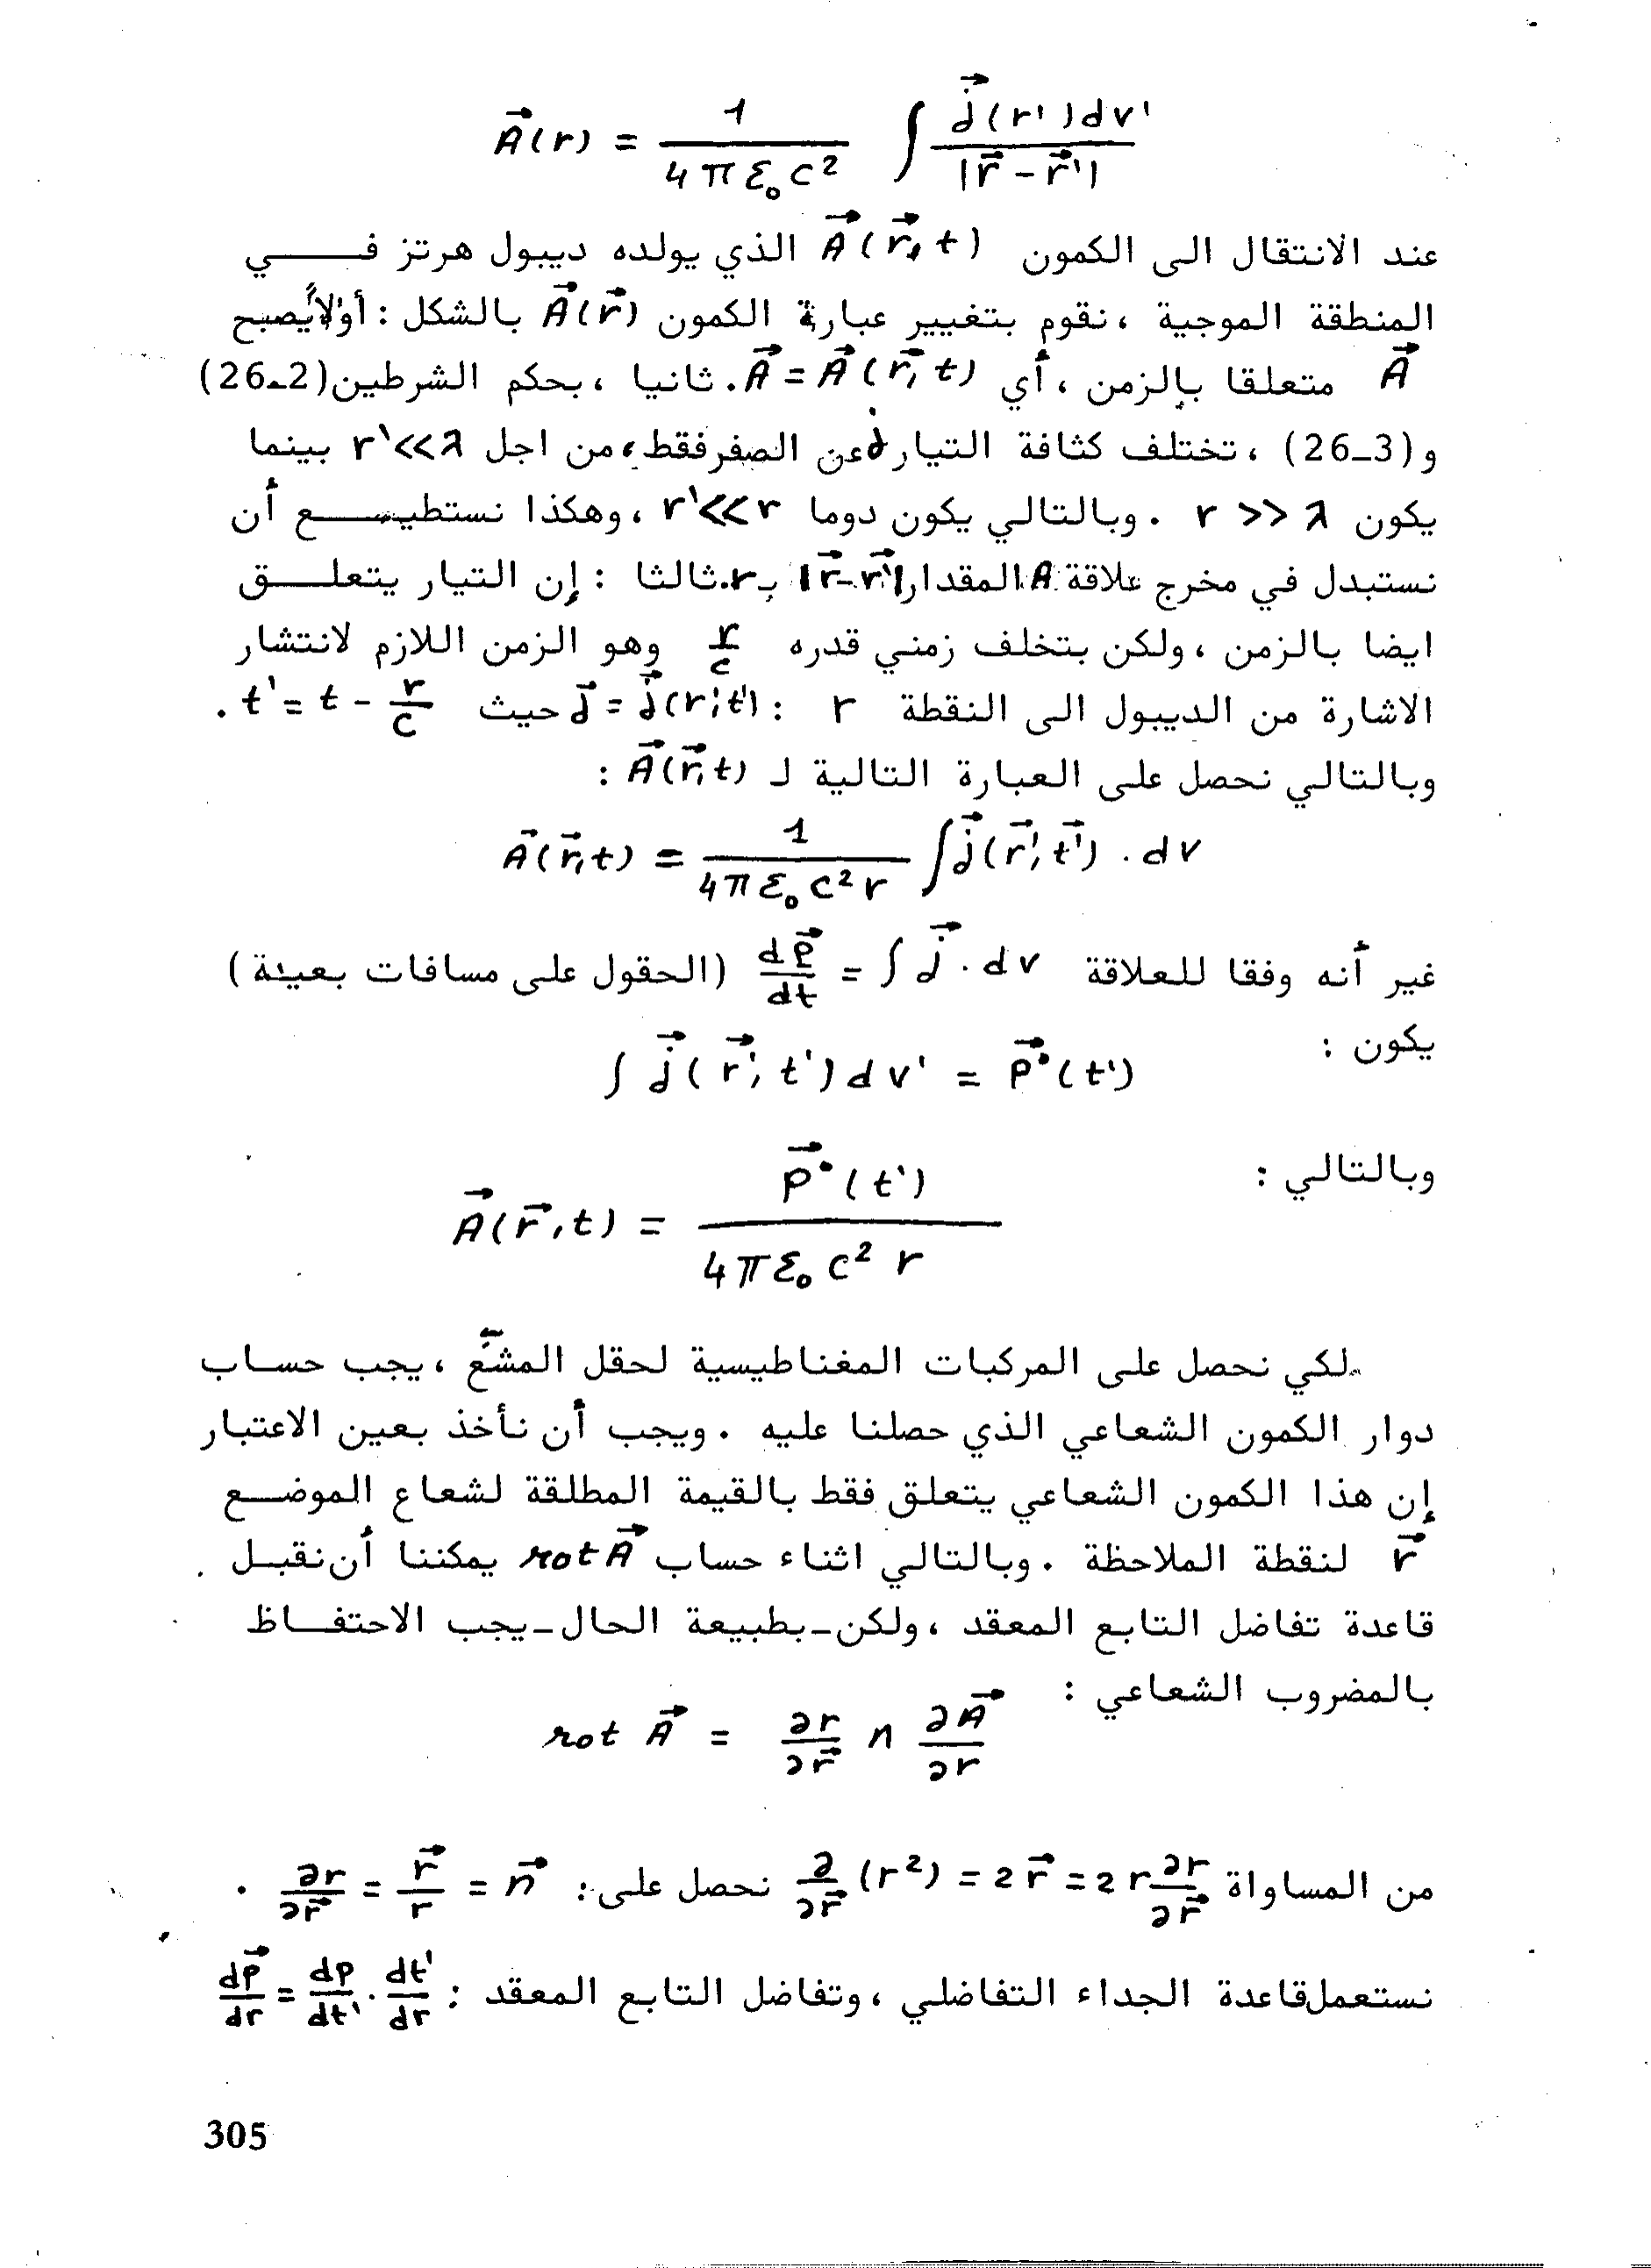 A⃗(r) = 1 / (4πε₀c²) ∫ j⃗(r')dv' / |r⃗ - r⃗'|
عند الانتقال الى الكمون A⃗(r⃗, t) الذي يولده ديبول هرتز في
المنطقة الموجية ، نقوم بتغيير عبارة الكمون A⃗(r⃗) بالشكل : أولاً يُصبح
A⃗ متعلقا بالزمن ، أي A⃗ = A⃗(r⃗, t) . ثانيا ، بحكم الشرطين (2-26)
و (3-26) ، تختلف كثافة التيار j عن الصفر فقط ، من اجل r' << λ بينما
يكون r >> λ . وبالتالي يكون دوما r' << r ، وهكذا نستطيع أن
نستبدل في مخرج علاقة A المقدار |r⃗ - r⃗'| بـ r . ثالثا : إن التيار يتعلق
ايضا بالزمن ، ولكن بتخلف زمني قدره r/c وهو الزمن اللازم لانتشار
الاشارة من الديبول الى النقطة r : j⃗ = j⃗(r', t') حيث t' = t - r/c .
وبالتالي نحصل على العبارة التالية لـ A⃗(r⃗, t) :
A⃗(r⃗, t) = 1 / (4πε₀c²r) ∫ j⃗(r⃗', t⃗') . dv
غير أنه وفقا للعلاقة dp⃗/dt = ∫ j⃗ . dv (الحقول على مسافات بعيدة)
يكون :
∫ j⃗(r⃗', t')dv' = p⃗°(t')
وبالتالي :
A⃗(r⃗, t) = p⃗°(t') / (4πε₀c² r)
لكي نحصل على المركبات المغناطيسية لحقل المشع ، يجب حساب
دوار الكمون الشعاعي الذي حصلنا عليه . ويجب أن نأخذ بعين الاعتبار
إن هذا الكمون الشعاعي يتعلق فقط بالقيمة المطلقة لشعاع الموضع
r⃗ لنقطة الملاحظة . وبالتالي اثناء حساب rot A⃗ يمكننا أن نقبل
قاعدة تفاضل التابع المعقد ، ولكن - بطبيعة الحال - يجب الاحتفاظ
بالمضروب الشعاعي :
rot A⃗ = ∂r/∂r⃗ ∧ ∂A⃗/∂r
من المساواة ∂/∂r⃗ (r²) = 2r⃗ = 2r ∂r/∂r⃗ نحصل على : ∂r/∂r⃗ = r⃗/r = n⃗ .
نستعمل قاعدة الجداء التفاضلي ، وتفاضل التابع المعقد : dp⃗/dr = dp/dt' . dt'/dr
305